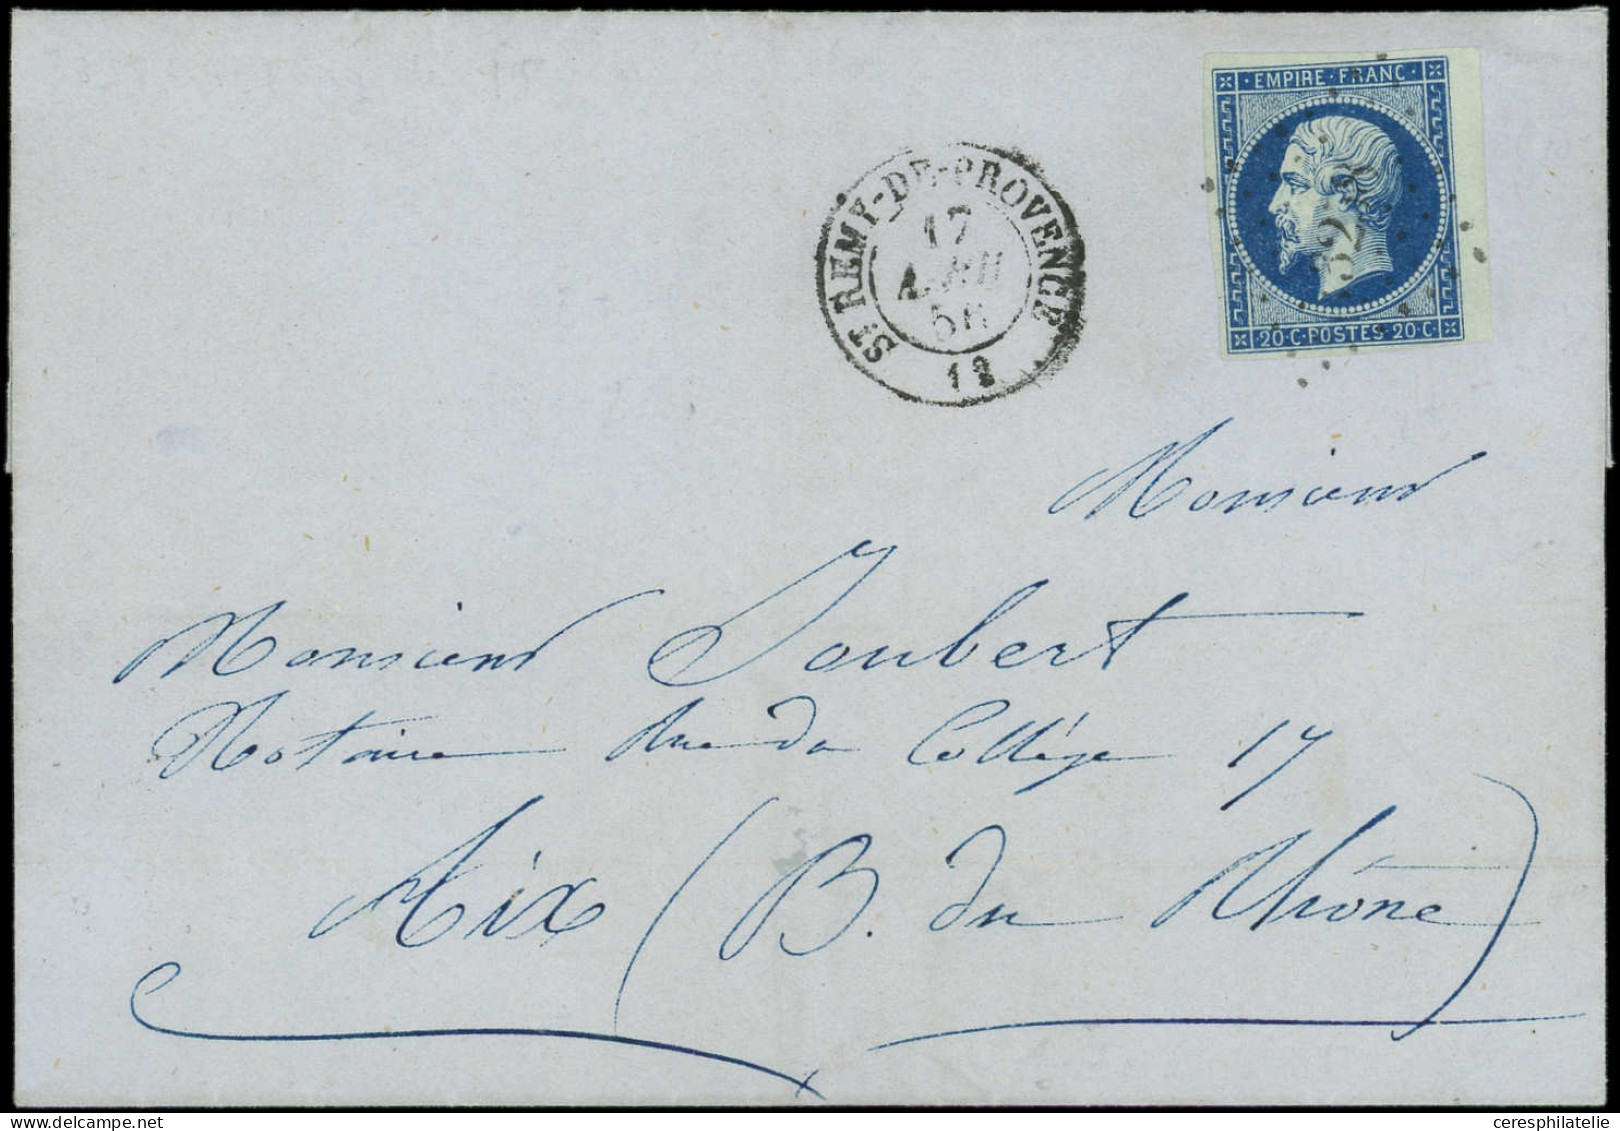 EMPIRE · FRANC ·
20 · C · POSTES · 20 · C ·
ST REMY-DE-PROVENCE
17
AVRIL
12
Monsieur
Monsieur Joubert
Notaire Rue du Collége 17
Aix (B. du Rhône)
ceresphilatelie